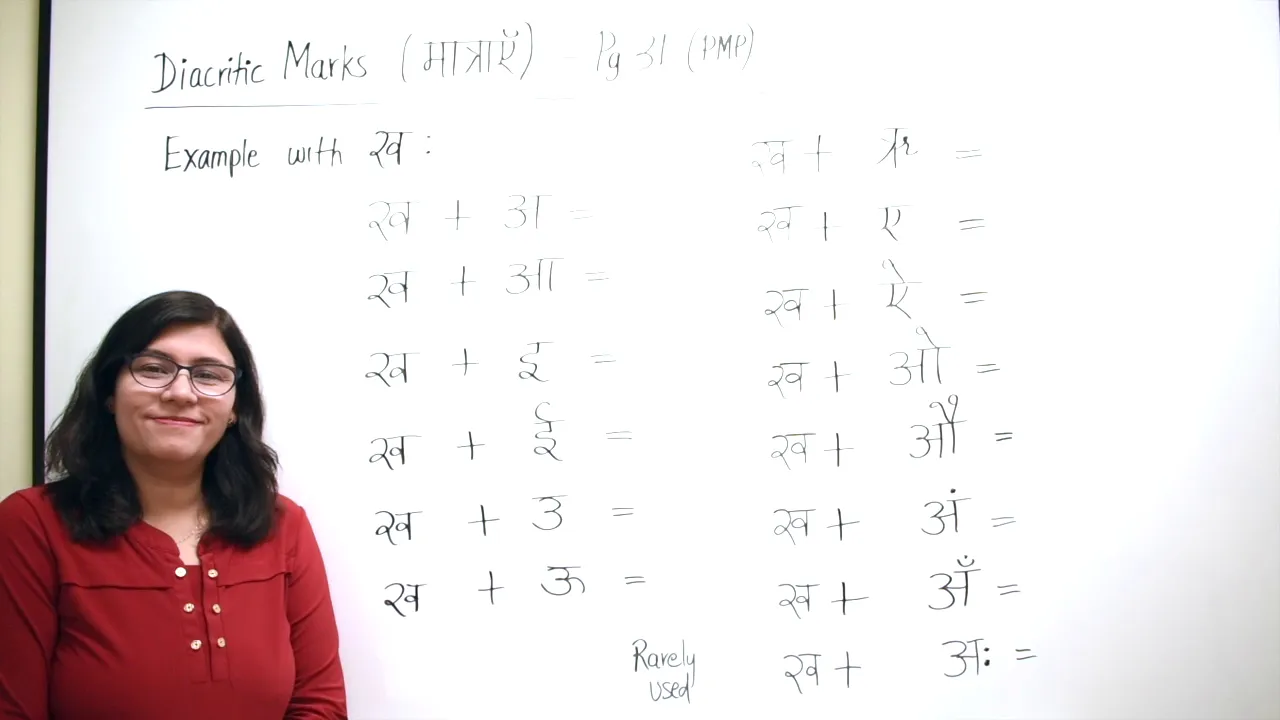 Diacritic Marks (मात्राएँ) - Pg 31 (PMP)
Example with ख :
ख + अ =
ख + आ =
ख + इ =
ख + ई =
ख + उ =
ख + ऊ =
ख + ऋ =
ख + ए =
ख + ऐ =
ख + ओ =
ख + औ =
ख + अं =
ख + अँ =
Rarely
used
ख + अः =